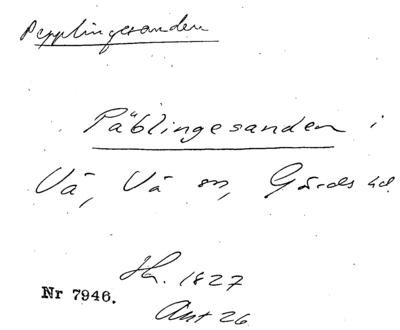 Pepplingesanden
Päblingesanden i
Vä, Vä sn, Gärds hd.
Sk. 1827
Nr 7946.
Akt 26